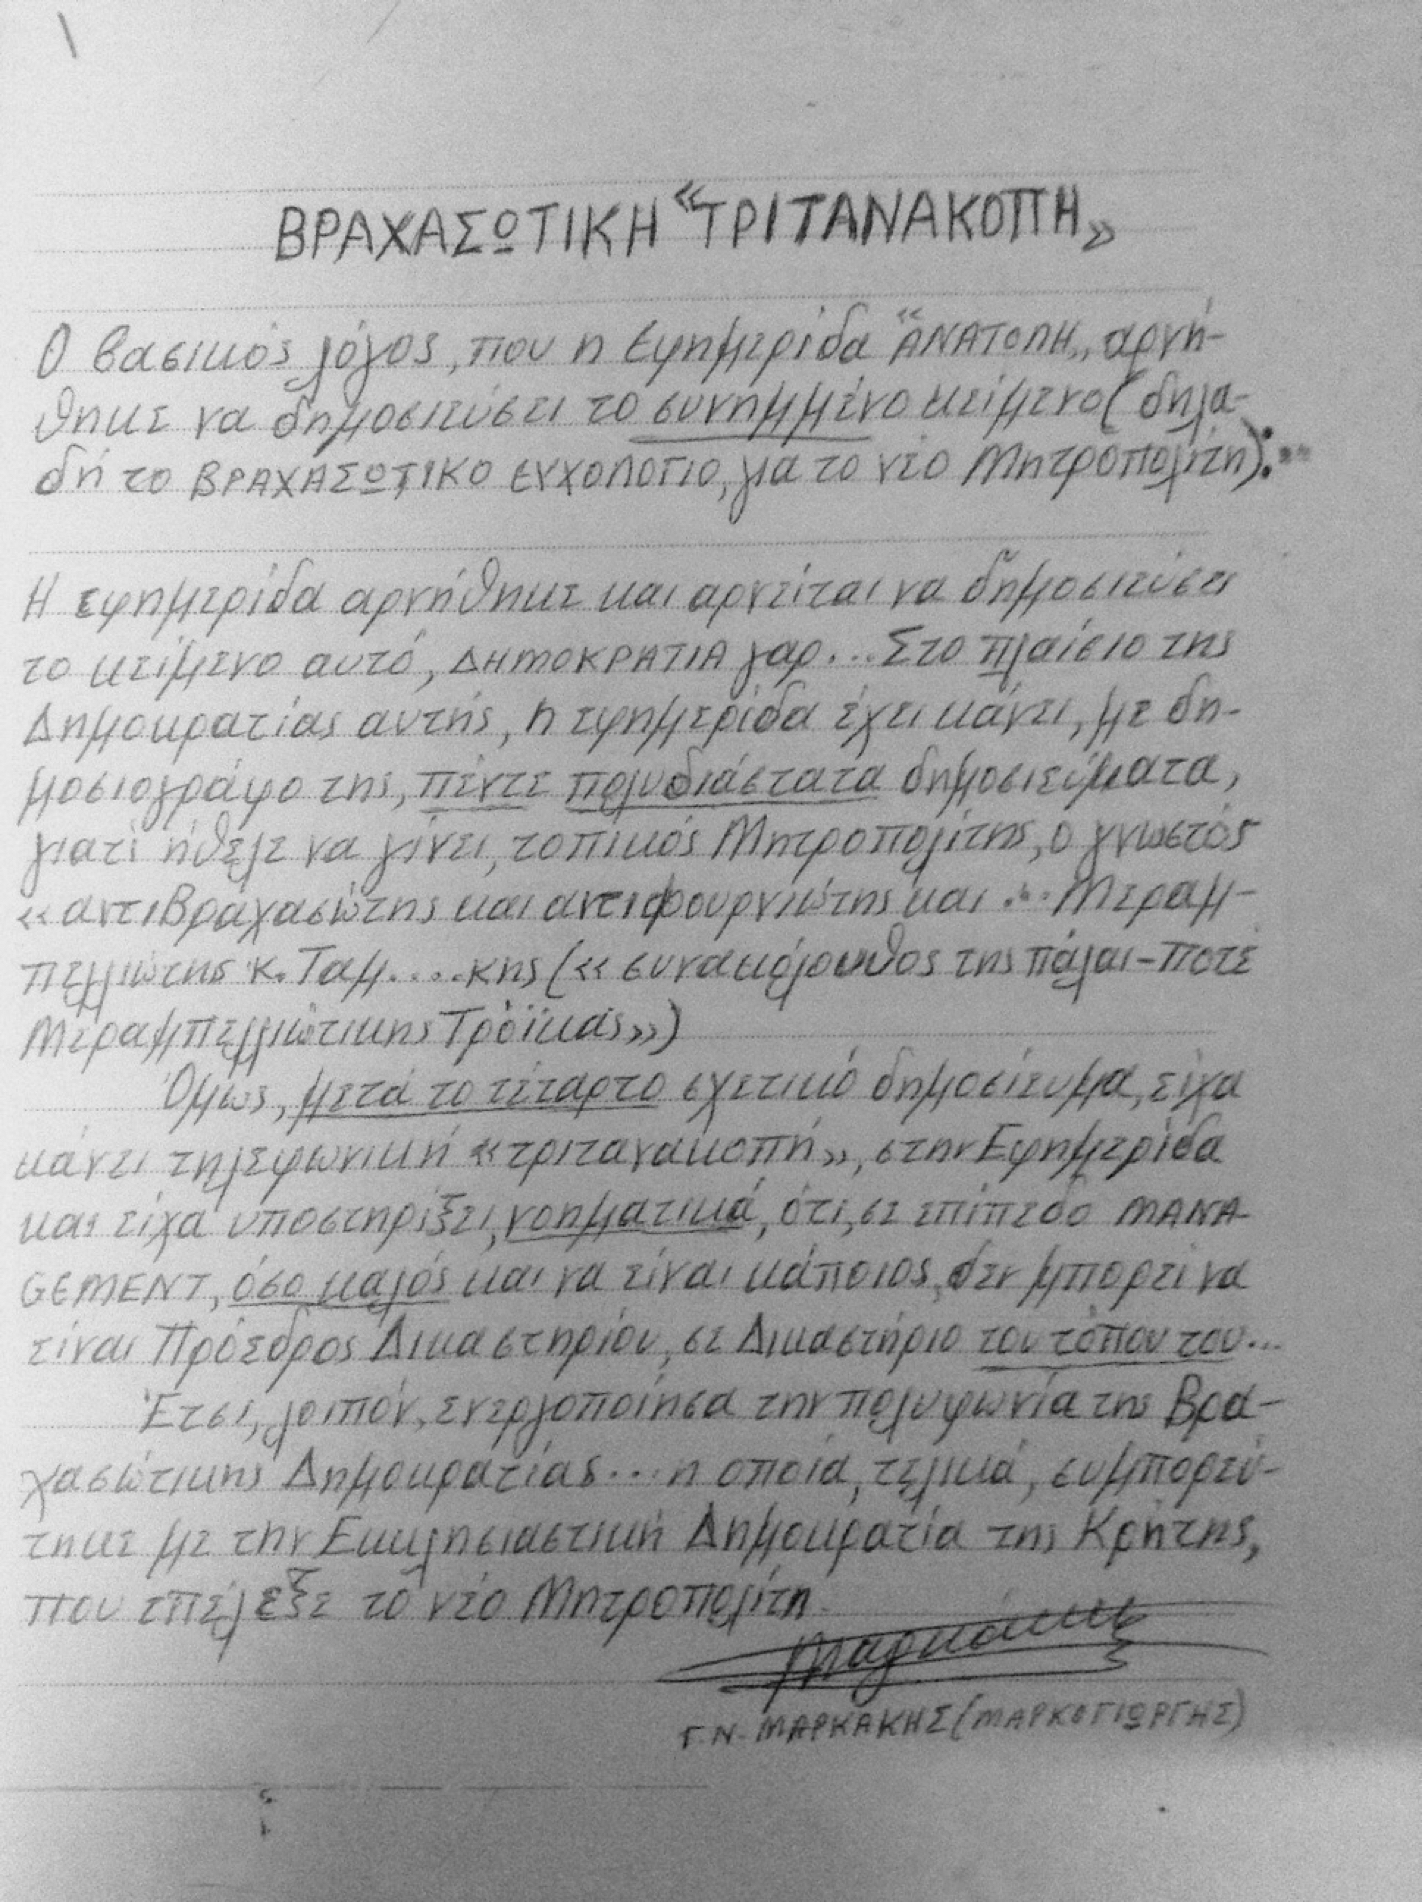 ΒΡΑΧΑΣΩΤΙΚΗ "ΤΡΙΤΑΝΑΚΟΠΗ"
Ο βασικός λόγος, που η Εφημερίδα "ΑΝΑΤΟΛΗ", αρνή-
θηκε να δημοσιεύσει το συνημμένο κείμενο (δηλα-
δή το ΒΡΑΧΑΣΩΤΙΚΟ ΕΥΧΟΛΟΓΙΟ, για το νέο Μητροπολίτη):
Η εφημερίδα αρνήθηκε και αρνείται να δημοσιεύσει
το κείμενο αυτό, ΔΗΜΟΚΡΑΤΙΑ γαρ... Στο πλαίσιο της
Δημοκρατίας αυτής, η εφημερίδα έχει κάνει, με δη-
μοσιογράφο της, πέντε πολυδιάστατα δημοσιεύματα,
γιατί ήθελε να γίνει, τοπικός Μητροπολίτης, ο γνωστός
«αντιΒραχασώτης και αντιφουρνιώτης και ... Μεραμ-
πελλιώτης κ. Ταμ....κης («συνακόλουθος της πάλαι-ποτέ
Μεραμπελλιώτικης Τρόϊκας»)
Όμως, μετά το τέταρτο σχετικό δημοσίευμα, είχα
κάνει τηλεφωνική «τριτανακοπή», στην Εφημερίδα
και είχα υποστηρίξει, νοηματικά, ότι, σε επίπεδο ΜΑΝΑ-
GEMENT, όσο καλός και να είναι κάποιος, δεν μπορεί να
είναι Πρόεδρος Δικαστηρίου, σε Δικαστήριο του τόπου του...
Έτσι, λοιπόν, ενεργοποίησα την πολυφωνία της Βρα-
χασώτικης Δημοκρατίας... η οποία, τελικά, συμπορεύ-
τηκε με την Εκκλησιαστική Δημοκρατία της Κρήτης,
που επέλεξε το νέο Μητροπολίτη.
Μαρκάκης
Γ.Ν. ΜΑΡΚΑΚΗΣ (ΜΑΡΚΟΓΙΩΡΓΗΣ)